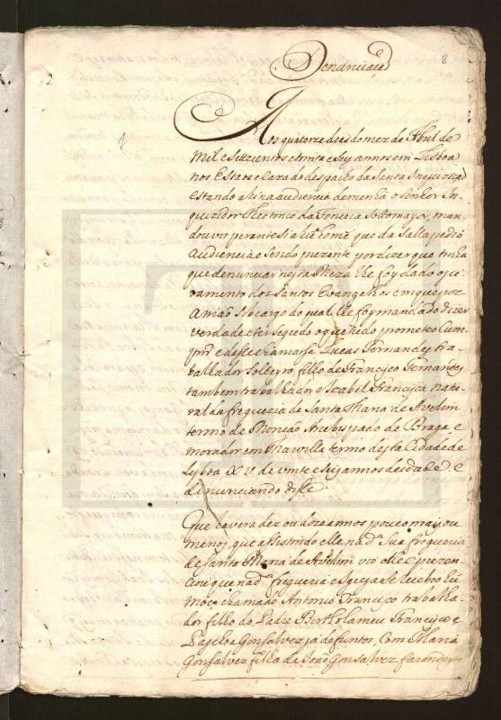 8
Denunciação
Aos quatorze dias do mez de Abril de
Mil e Settecentos e trinta e seis annos em Lisboa
nos Estaos e Caza do despacho da Santa Inquizição
estando ahi na audiencia de menhã o senhor In
quizidor da Fonseca Sottomayor, man
dou vir perante si a hũ homẽ que da Salla pedio
Audiencia e sendo prezente por dizer que tinha
que denunciar nesta Meza lhe foy dado o ju
ramento dos Santos Evangelhos em que poz
a mão, sob cargo do qual lhe foy mandado dizer
verdade e ter segredo o que elle prometeo cum
prir e disse chamarse Lucas Fernandez tra
balhador solteyro, filho de Francisco Fernandez
tambem trabalhador e Izabel Francisca natu
ral da freguezia de Santa Maria de
termo de Monção Arcebispado de Braga e
morador em termo desta Cidade de
Lisboa de vinte e seis annos de idade e
denunciando disse
Que havera dez ou doze annos pouco mays ou
menos, que assistindo elle na dª Sua freguezia
de Santa Maria de vio elle e prezen
ciou que na dª freguezia e Igreja Se recebeo hũ
moço chamado Antonio Francisco trabalha
dor filho do Padre Bertholameu Francisco e
Gonsalvez ja defuntos, Com Maria
Gonsalvez filha de João Gonsalvez